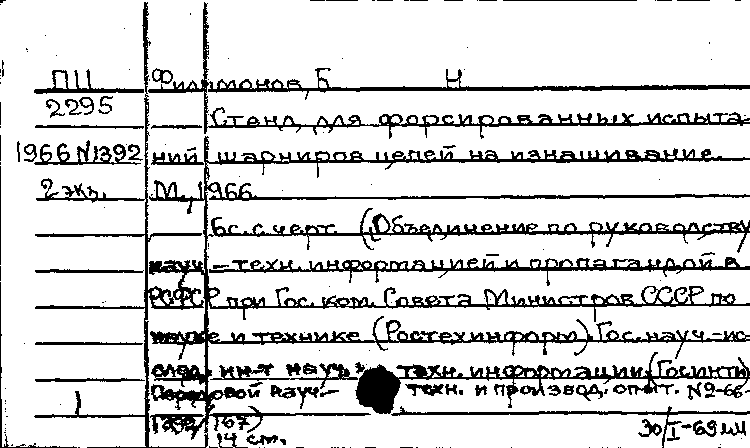 ПЦ Филимонов, Б Н
2295 Стенд для форсированных испыта-
1966 N1392 ний шарниров цепей на изнашивание.
2 экз. М., 1966
6с. с черт. (Объединение по руководству
науч.-техн. информацией и пропагандой в
РСФСР при Гос. ком. Совета Министров СССР по
науке и технике (Ростехинформ). Гос. науч.-ис-
след. ин-т науч. и техн. информации (Госинти)
Передовой науч.- техн. и производ. опыт. N2-66-
1 1392/167)
14 см. 30/I-69